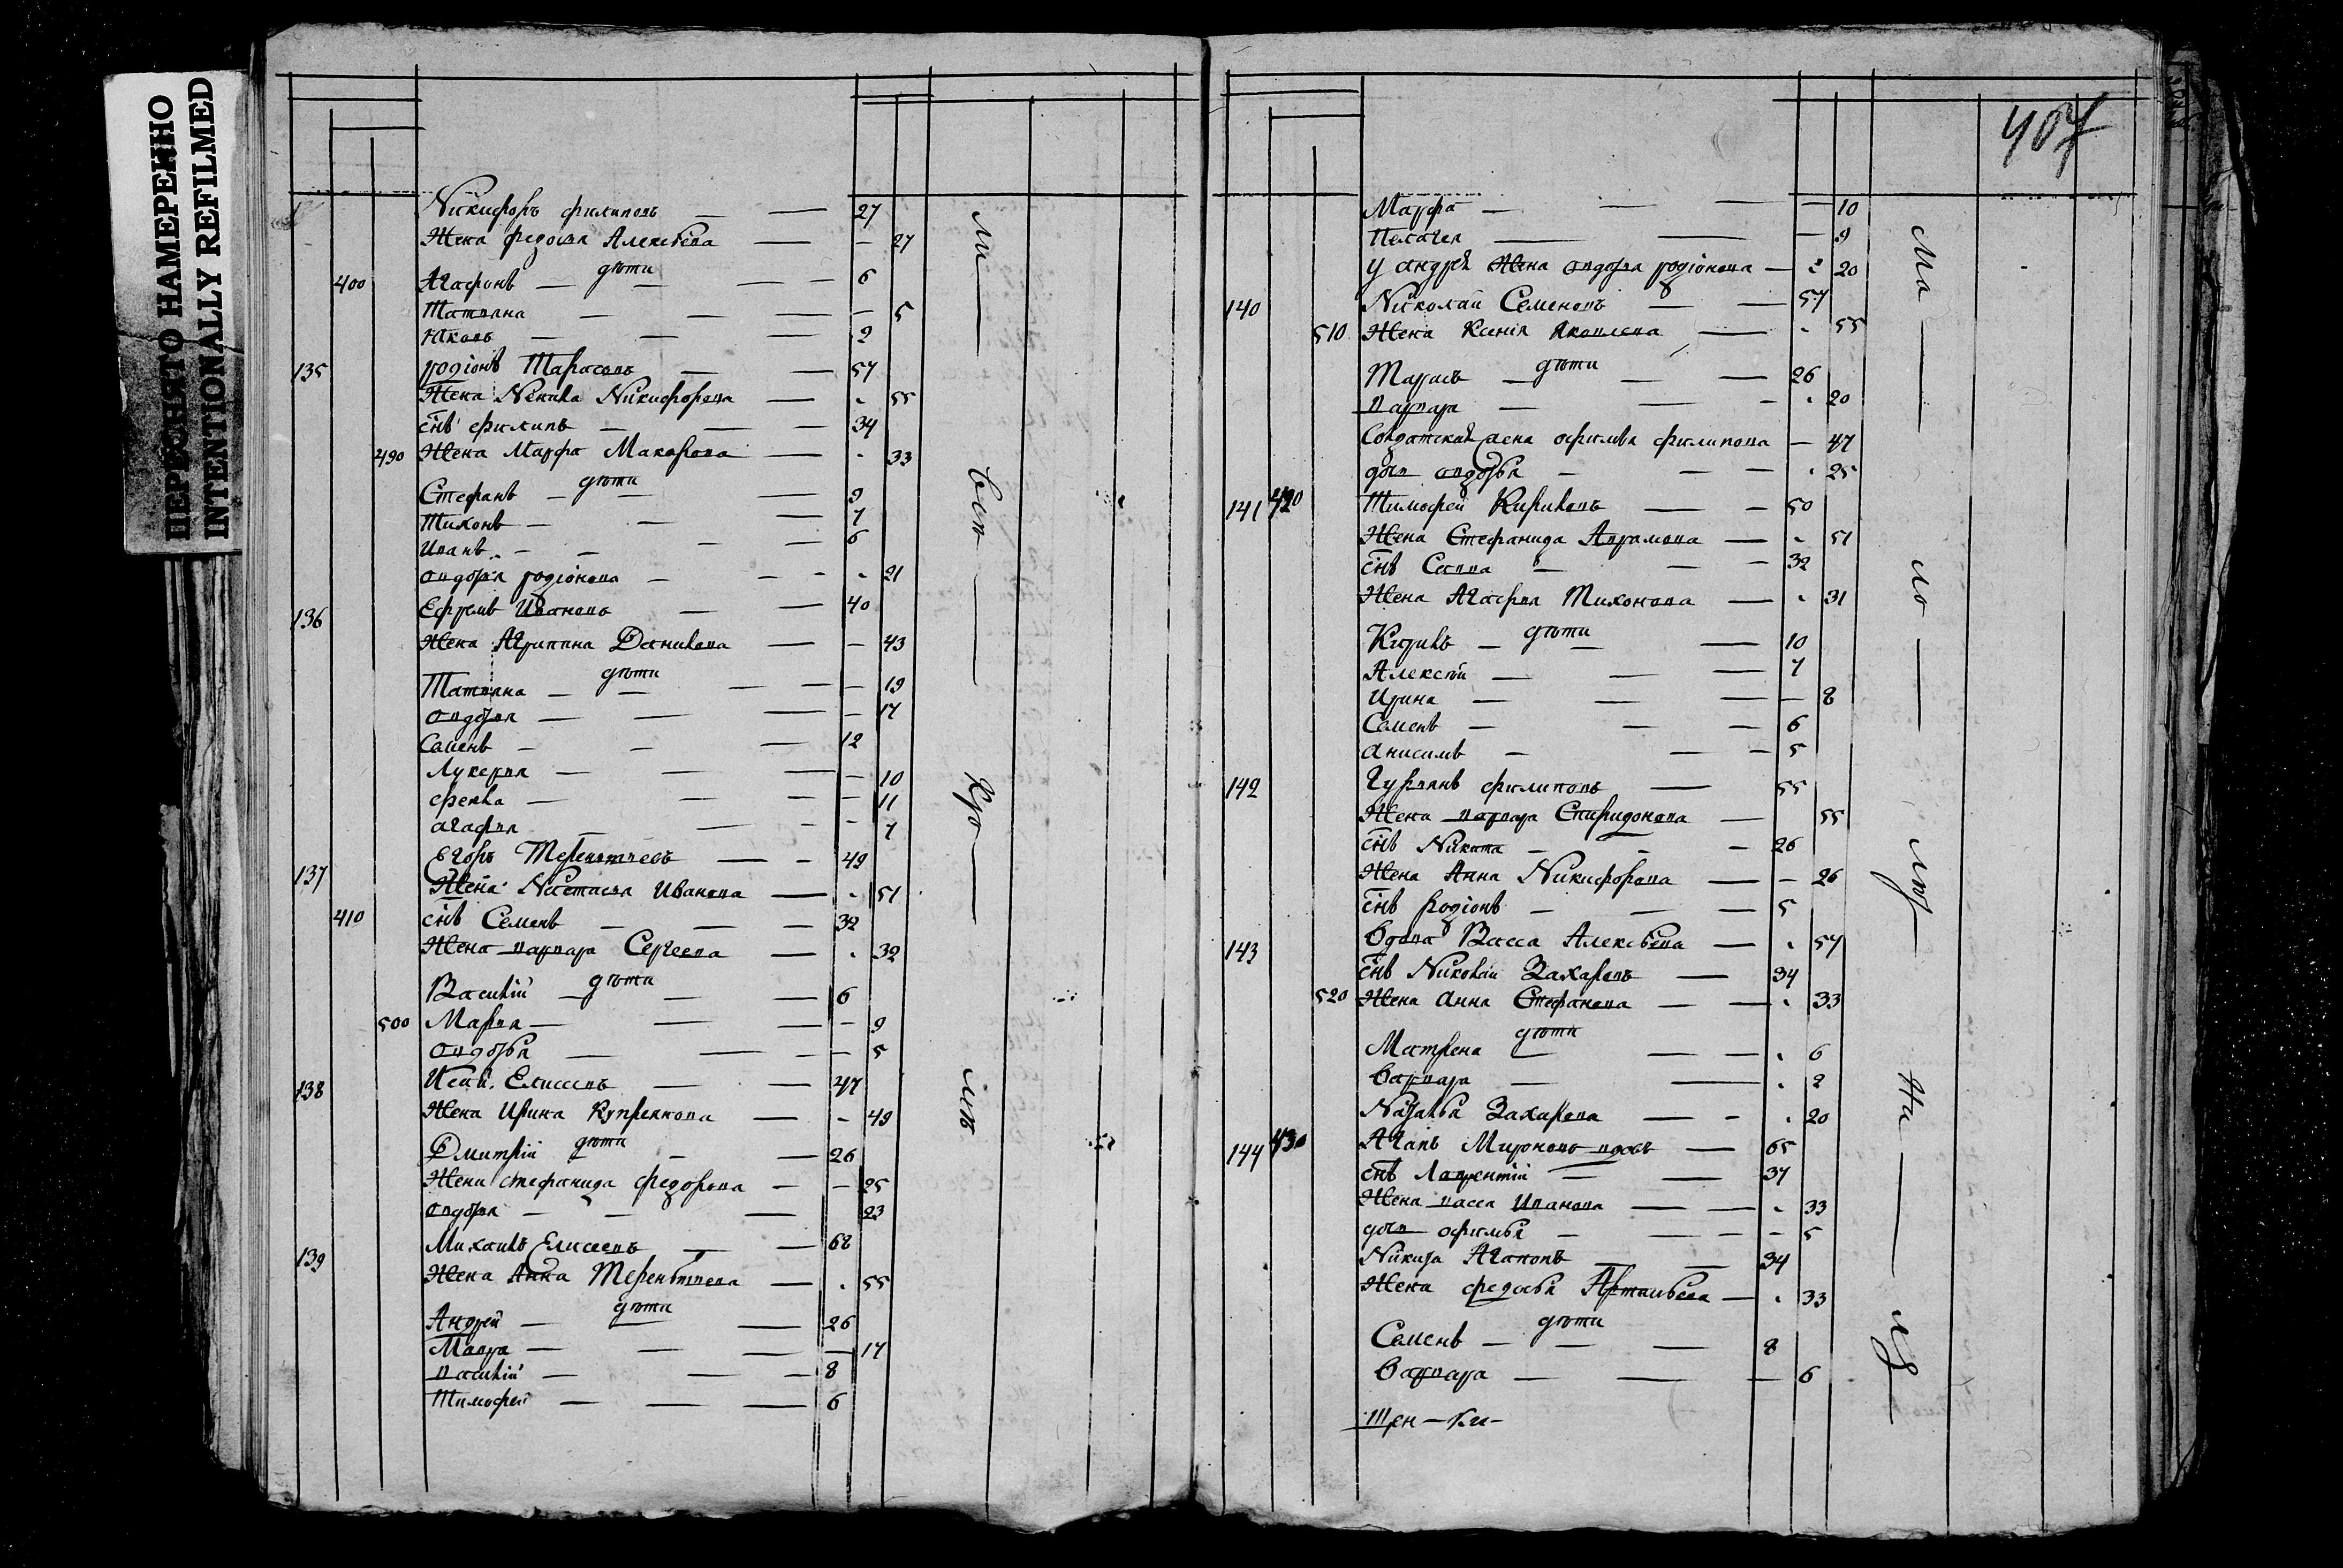 ПЕРЕСНЯТО НАМЕРЕННО
INTENTIONALLY REFILMED
Никифоръ филиповъ — — 27
Жена федосья Алексѣева — — 27
дѣти
400 Агафонъ — — — 6
Татьяна — — — — 5
Яковъ — — — 2
135 родіонъ Тарасовъ — — 57
Жена Ненила Никифорова — 55
сн̃ъ филипъ — — — 34
490 Жена Марфа Макарова — 33
дѣти
Стефанъ — — — 9
Тихонъ — — — 7
Иванъ — — — 6
овдотья родіонова — — 21
136 Ефремъ Ивановъ — — 40
Жена Агрипина Данилова — — 43
дѣти
Татьяна — — — 19
овдотья — — — 17
Семенъ — — — 12
Лукерья — — — 10
фекла — — — 11
агафья — — — 7
137 Егоръ Терентьевъ — — 49
Жена Настасья Иванова — 51
410 сн̃ъ Семенъ — — — 32
Жена варвара Сергеева — 32
дѣти
Василій — — — 6
500 Марья — — — 9
овдотья — — — 5
138 Исай Елисеевъ — — 47
Жена Ирина Купреянова — — 49
дѣти
Дмитрій — — — 26
Жена стефанида федорова — — 25
овдотья — — — 23
139 Михаилъ Елисеевъ — — 68
Жена Анна Терентьева — 55
дѣти
Андрей — — — 26
Мавра — — — 17
василій — — — 8
Тимофей — — — 6
ли — вст — Кро — мъ
407
Марфа — — — 10
Пелагея — — — 9
У андрея Жена овдотья родіонова — 2 20
140 Николай Семеновъ — — 57
510 Жена Ксенія Яковлева — 55
дѣти
Тарасъ — — — 26
варвара — — — 20
Солдатская жена офимья филипова — 47
дочь овдотья — — — 25
141 420 Тимофей Кириловъ — — 50
Жена Стефанида Аврамова — 51
сн̃ъ Савва — — — 32
Жена Агафья Тихонова — 31
дѣти
Кирилъ — — — 10
Алексѣй — — — 7
Ирина — — — 8
Семенъ — — — 6
анисимъ — — — 5
142 Гурьянъ филиповъ — 55
Жена варвара Спиридонова — 55
сн̃ъ Никита — — — 26
Жена Анна Никифорова — — 26
сн̃ъ родіонъ — — — 5
143 вдова Васса Алексѣева — 57
сн̃ъ Николай Захаровъ — 34
520 Жена анна Стефанова — — 33
дѣти
Матрена — — — 6
варвара — — 2
Наталья Захарова — — 20
144 430 Агапъ Мироновъ вдовъ — 65
сн̃ъ Лаврентій — — 37
Жена васса Иванова — — 33
дочь офимья — — — 5
Никита Агаповъ — — 34
Жена федосья — 33
дѣти
Семенъ — — — 8
варвара — — — 6
Ма — ло — — На —